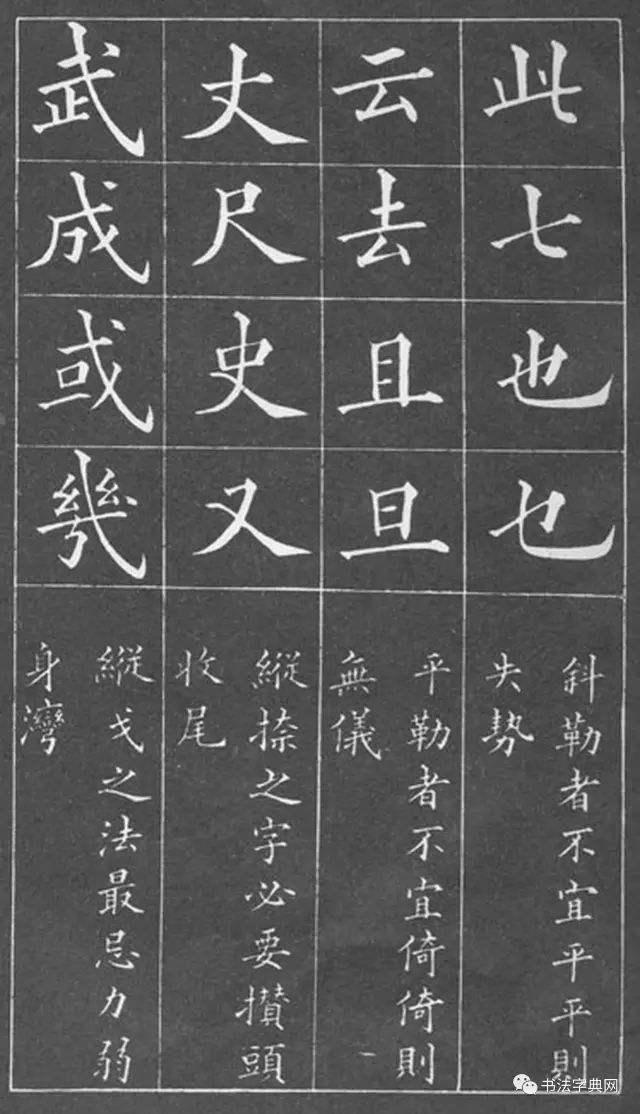 此七也乜
斜勒者不宜平平則
失勢
云去且旦
平勒者不宜倚倚則
無儀
丈尺史又
縱捺之字必要攢頭
收尾
武成或幾
縱戈之法最忌力弱
身灣
书法字典网